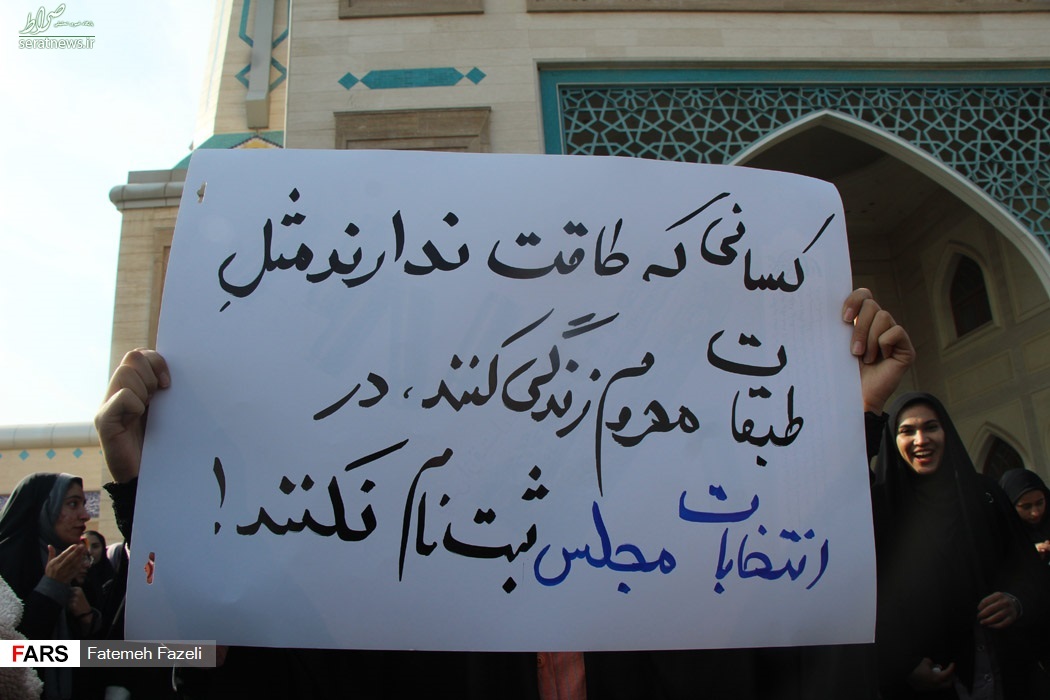 صراط
seratnews.ir
کسانی که طاقت ندارند مثلِ
طبقات محروم زندگی کنند، در
انتخابات مجلس ثبت نام نکنند!
FARS Fatemeh Fazeli